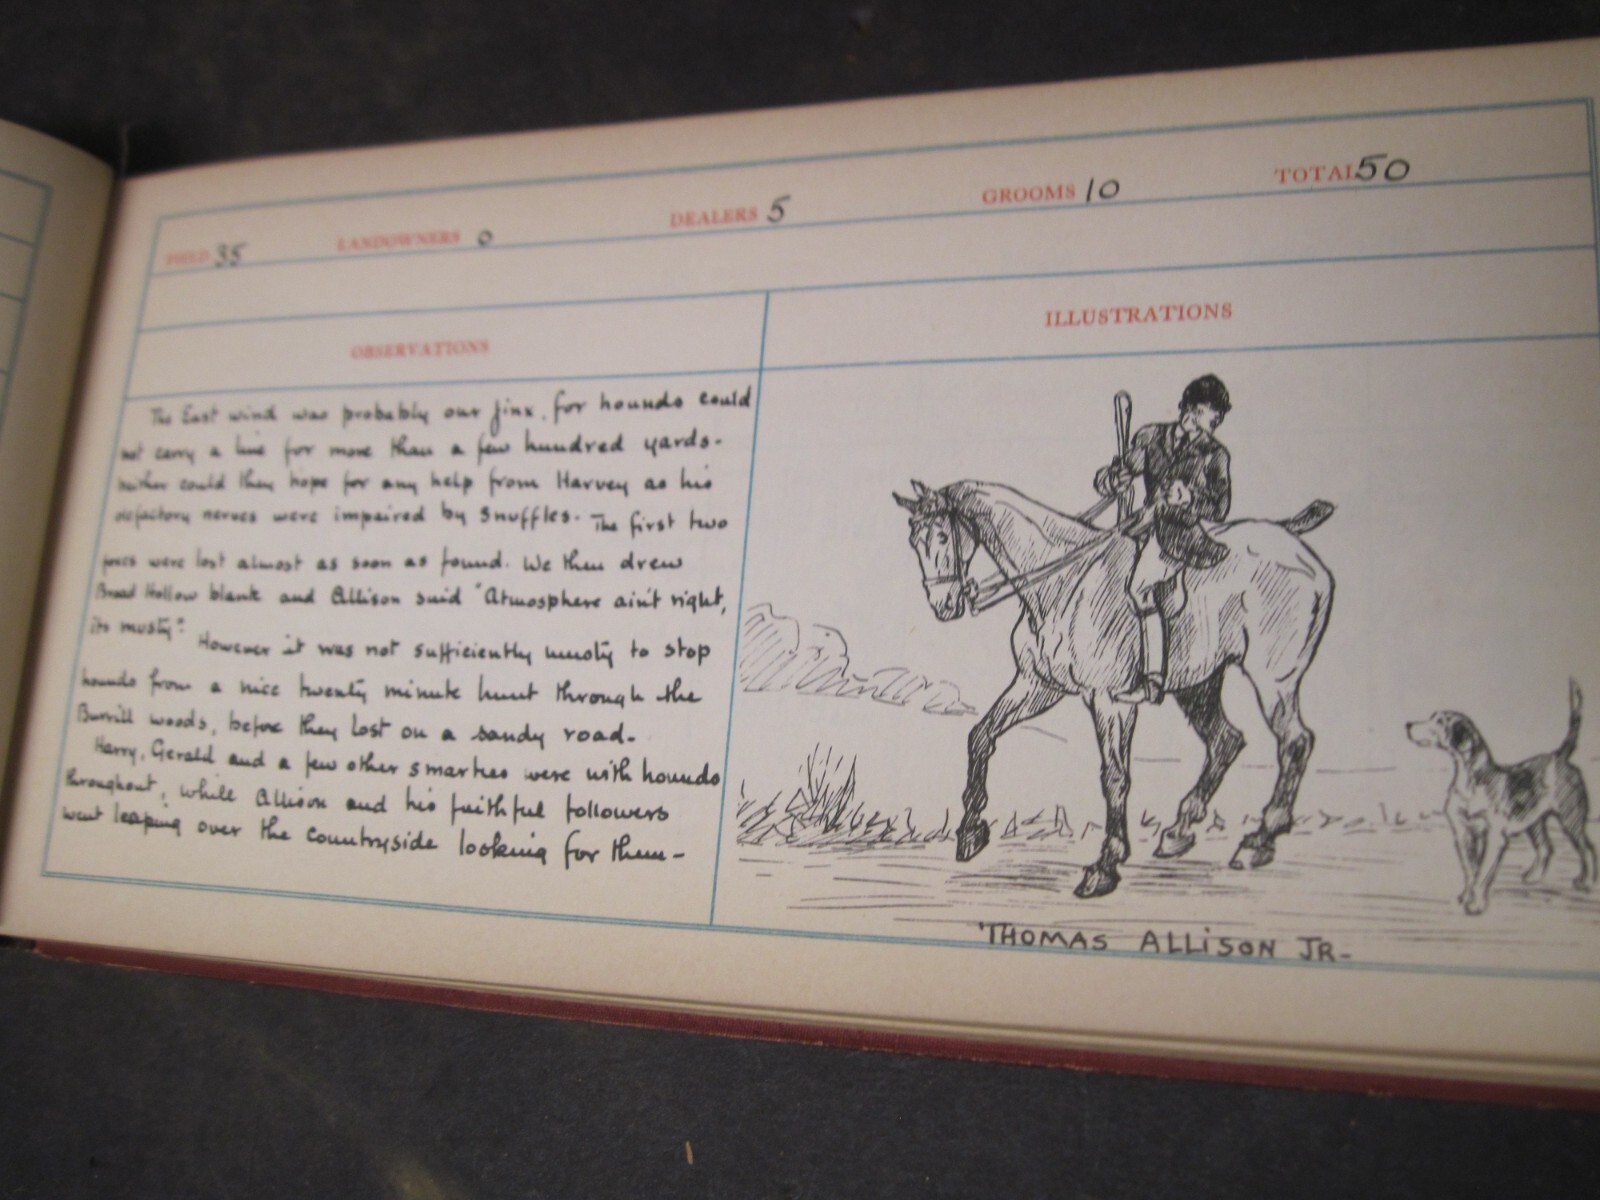 FIELD 35 LANDOWNERS 0 DEALERS 5 GROOMS 10 TOTAL 50
OBSERVATIONS
ILLUSTRATIONS
The East wind was probably our jinx, for hounds could
not carry a line for more than a few hundred yards-
neither could they hope for any help from Harvey as his
olefactory nerves were impaired by snuffles. The first two
foxes were lost almost as soon as found. We then drew
Broad Hollow blank and Allison said "Atmosphere ain't right,
its musty". However it was not sufficiently musty to stop
hounds from a nice twenty minute hunt through the
Burrill woods, before they lost on a sandy road-
Harry, Gerald and a few other smarties were with hounds
throughout, while Allison and his faithful followers
went leaping over the countryside looking for them-
THOMAS ALLISON JR-